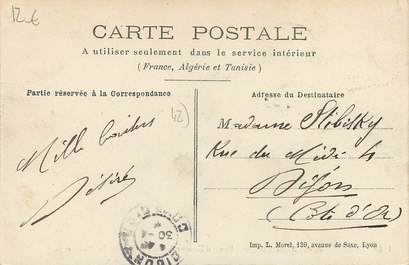 12-€
CARTE POSTALE
A utiliser seulement dans le service intérieur
(France, Algérie et Tunisie)
Partie réservée à la Correspondance
Adresse du Destinataire
42
Mille baisers
Désiré
Madame
Rue du Midi 4
Dijon
(Côte d'Or)
DIJON
30
Imp. L. Morel, 139, avenue de Saxe, Lyon